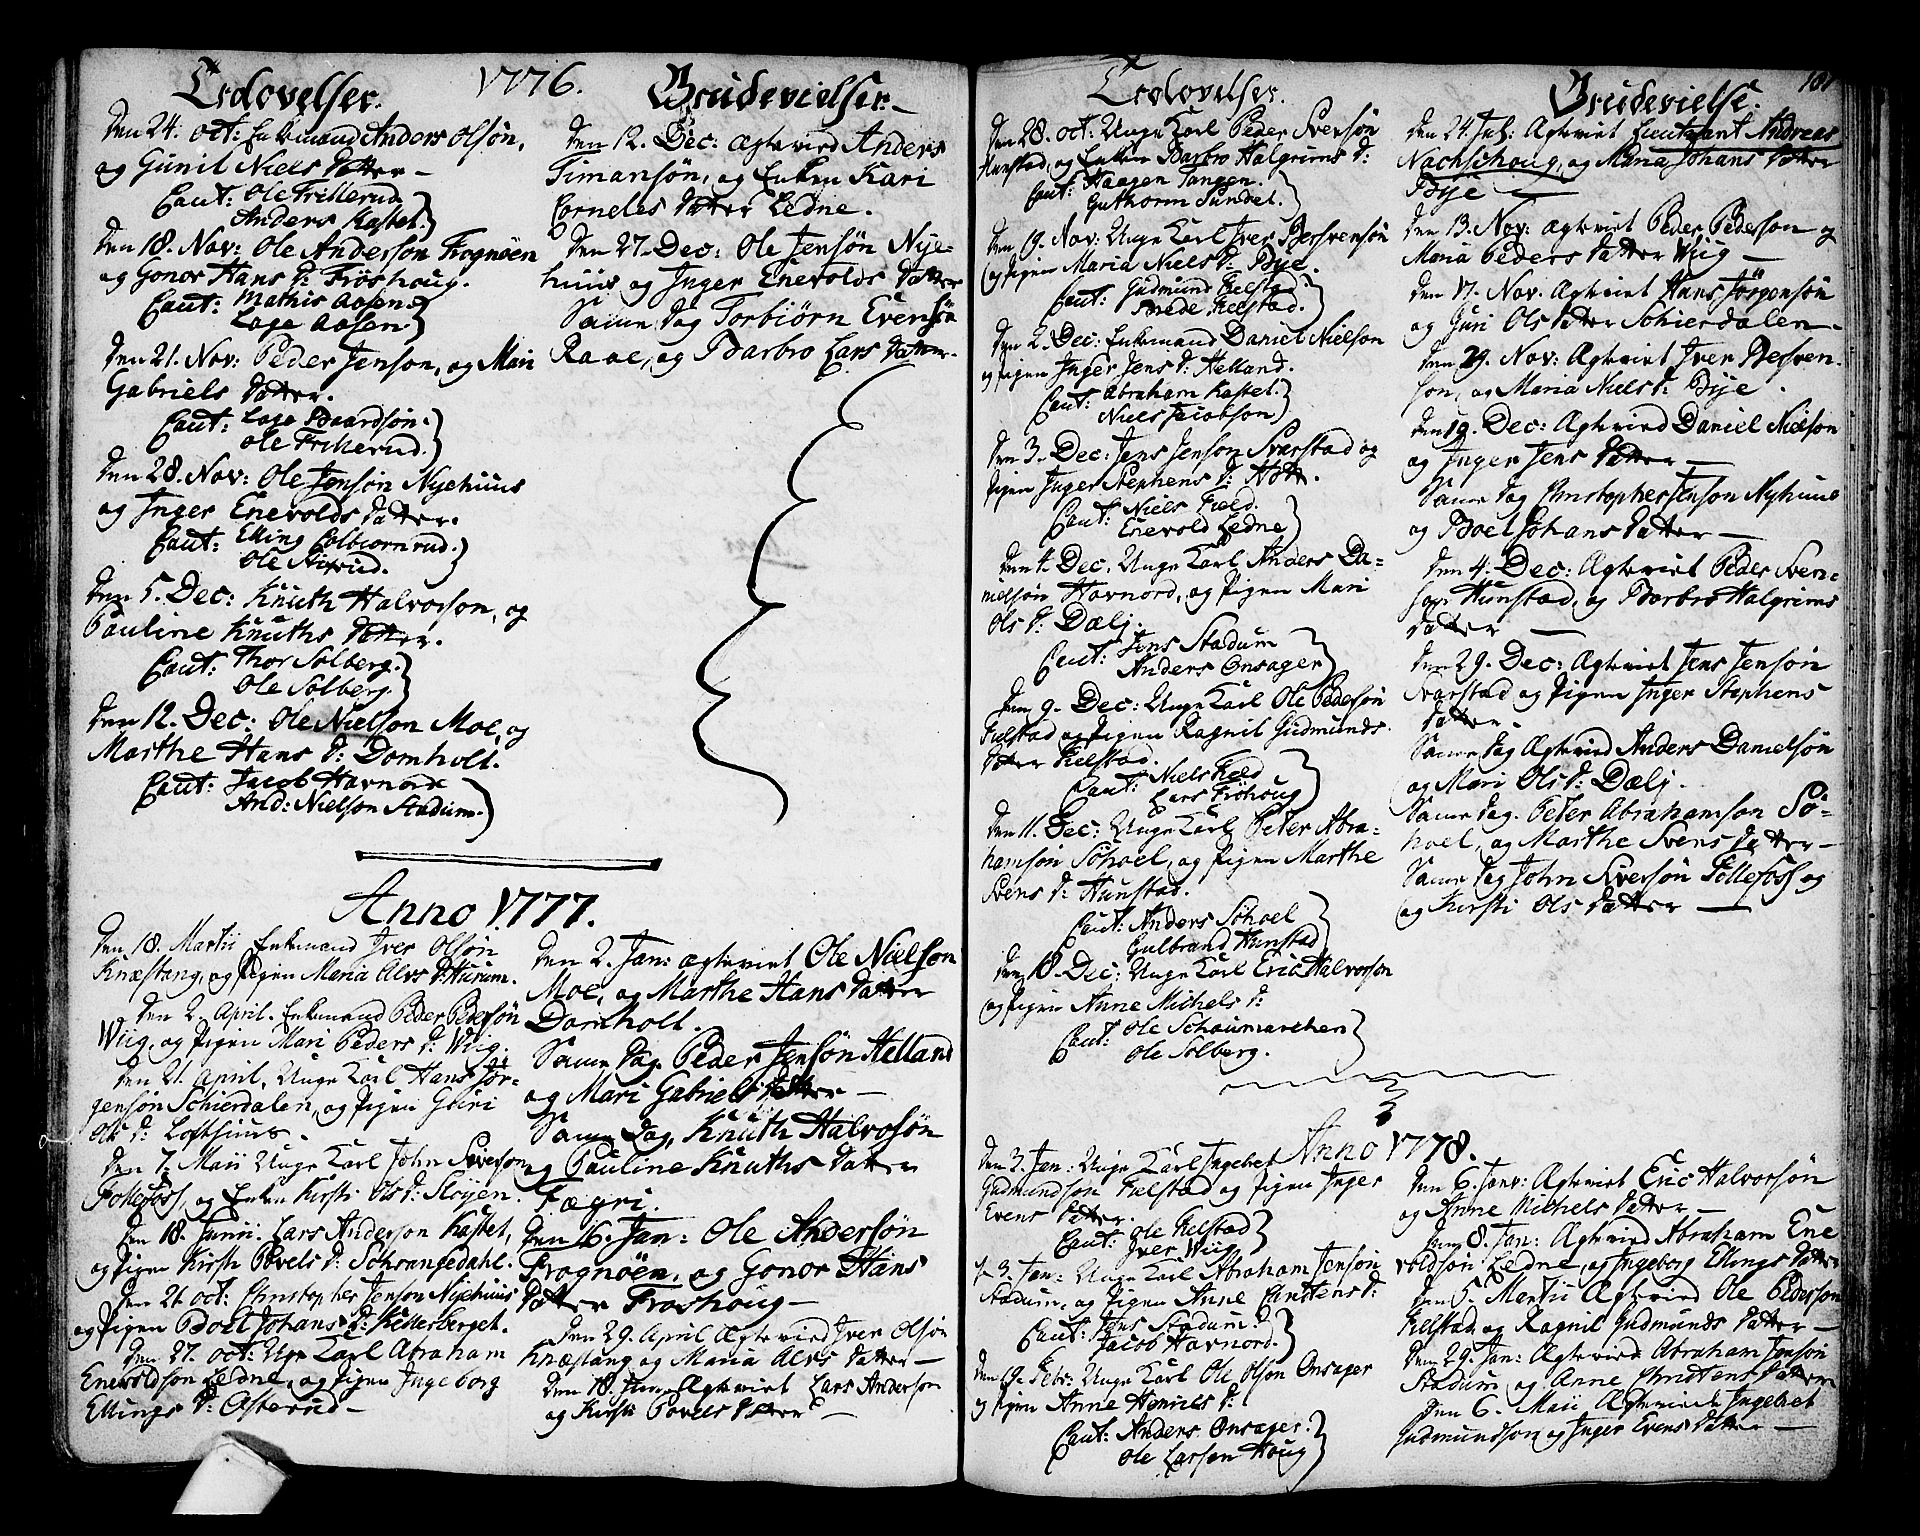 1776.
Trolovelser.
Den 24. oct: Enkemand Anders Olsøn,
og Gunil Niels Datter —
Caut: Ole Frillerud
Anders Kastet.
Den 18. Nov: Ole Andersøn Frognøen
og Gonor Hans D: Frøshoug.
Caut: Mathis Aasen
Lage Aasen.
Den 21. Nov: Peder Jenson, og Mari
Gabriels Datter.
Caut: Lage Baardsøn.
Ole Frillerud.
Den 28. Nov: Ole Jensøn Nyehuus
og Inger Enevolds Datter.
Caut: Elling Colbiørnrud.
Ole
Den 5. Dec: Knuth Halvorson, og
Pauline Knuths Datter.
Caut: Thor Solberg.
Ole Solberg.
Den 12. Dec: Ole Nielson Moe, og
Marthe Hans D: Domholt.
Caut: Jacob Havnord
And: Nielson Stadum.
Brudevielser.
Den 12. Dec: Ægtevied Anders
Timansøn, og Enken Kari
Corneles Datter Ledne.
Den 27. Dec: Ole Jensøn Nye-
huus og Inger Enevolds Datter
Samme Dag Torbiørn Evensøn
Raae, og Barbro Lars Datter.
Anno 1777.
Den 18. Martii Enkemand Iver Olsøn
Knæstang, og Pigen Maria Alvs D: Hurum.
Den 2. April. Enkemand Peder Pedersøn
Wiig, og Pigen Mari Peders D: Wiig.
Den 21. April, Unge Karl Hans Jør-
gensøn Schierdalen, og Pigen Guri
Ols D: Lofthuus.
Den 7. Maii Unge Karl John Siverson
Follefoss, og Enken Kirsti Ols D: Sløyen.
Den 18. Junii. Lars Anderson Kastet,
og Pigen Kirsti Povels D: Schrangedahl.
Den 21 oct: Christopher Jenson Nyehuus
og Pigen Boel Johans D: Kittelsberget.
Den 27. oct: Unge Karl Abraham
Enevoldson Ledne, og Pigen Ingeborg
Ellings D: Asterud —
Den 2. Jan: Ægteviet Ole Nielson
Moe, og Marthe Hans Datter
Domholt.
Samme Dag. Peder Jensøn Helland
og Mari Gabriels Datter —
Samme Dag, Knuth Halvorsøn
og Pauline Knuths Datter
Fægri.
Den 16. Jan: Ole Andersøn
Frognøen, og Gonor Hans
Datter Froshoug —
Den 29. April Ægtevied Iver Olsøn
Knæstang og Maria Alvs Datter —
Den 18. Jun: Ægteviet Lars Anderson
og Kirsti Povels Datter —
Trolovelser.
Den 28. oct: Unge Karl Peder Svensøn
Hunstad, og Enken Barbro Halgrims D:
Caut: Haagen Tangen.
Guthorm Sundet.
Den 19. Nov: Unge Karl Iver Bersvensøn
og Pigen Maria Niels D: Bye.
Caut: Gudmund Kielstad.
Brede Kielstad.
Den 2. Dec: Enkemand Daniel Nielson
og Pigen Inger Jens D: Helland.
Caut: Abraham Kastet.
Niels Jacobson
Den 3. Dec: Jens Jenson Svarstad og
Pigen Inger Stephens D:
Caut: Niels Field.
Enevold Ledne
Den 4. Dec. Unge Karl Anders Da-
nielsøn Havnord, og Pigen Mari
Ols D: Dælj.
Caut: Jens Stadum
Anders Onsager
Den 9. Dec: Unge Karl Ole Pedersøn
Kielstad og Pigen Ragnil Gudmunds
Datter Kielstad.
Caut: Niels Field
Lars Frøhoug
Den 11. Dec: Unge Karl Peter Abra-
hamsøn Søhoel, og Pigen Marthe
Svens D: Hunstad.
Caut: Anders Søhoel
Gulbrand Hunstad
Den 18. Dec: Unge Karl Eric Halvorson
og Pigen Anne Michels D:
Caut: Ole Schaumarchen
Ole Solberg.
181
Brudevielse.
Den 24. Jul: Ægteviet Lieutenant Andreas
Nachschoug, og Maria Johans Datter
Bye —
Den 13. Nov: Ægteviet Peder Pederson og
Maria Peders Datter Wiig —
Den 17. Nov. Ægteviet Hans Jørgensøn
og Guri Ols Datter Schierdalen —
Den 29. Nov: Ægteviet Iver Bersven-
son, og Maria Niels D: Bye.
Den 19. Dec: Ægtevied Daniel Nielson
og Inger Jens Datter —
Samme Dag Christopher Jenson Nyhuus
og Boel Johans Datter —
Den 4. Dec: Ægteviet Peder Sven-
son Hunstad, og Barbro Halgrims
Datter —
Den 29. Dec: Ægteviet Jens Jensøn
Svarstad og Pigen Inger Stephens
Datter.
Samme Dag Ægtevied Anders Danielsøn
og Mari Ols D: Dælj.
Samme Dag. Peter Abrahamson Sø-
hoel, og Marthe Svens Datter —
Samme Dag John Siversøn Follefoss og
og Kirsti Ols Datter —
Anno 1778.
Den 3. Jan: Unge Karl Ingebret
Gudmundson Kielstad og Pigen Inger
Evens Datter.
Caut: Ole Kielstad
Iver Wiig
D. 3. Jan: Unge Karl Abraham Jensøn
Stadum, og Pigen Anne Christens D:
Caut: Jens Stadum.
Jacob Havnord.
Den 19. Febr: Unge Karl Ole Olson Onsager
og Pigen Anne Henrics D:
Caut: Anders Onsager.
Ole Larsen Houg
Den 6. Janv: Ægteviet Eric Halvorsøn
og Anne Michels Datter —
Den 8. Jan: Ægtevied Abraham Ene
voldsøn Ledne, og Ingeborg Ellings Datter
Den 5. Martii Ægteviet Ole Pederson
Kielstad og Ragnil Gudmunds Datter —
Den 29. Jan: Ægteviet Abraham Jenson
Stadum og Anne Christens Datter
Den 6. Maii, Ægteviede Ingebret
Gudmundson og Inger Evens Datter —